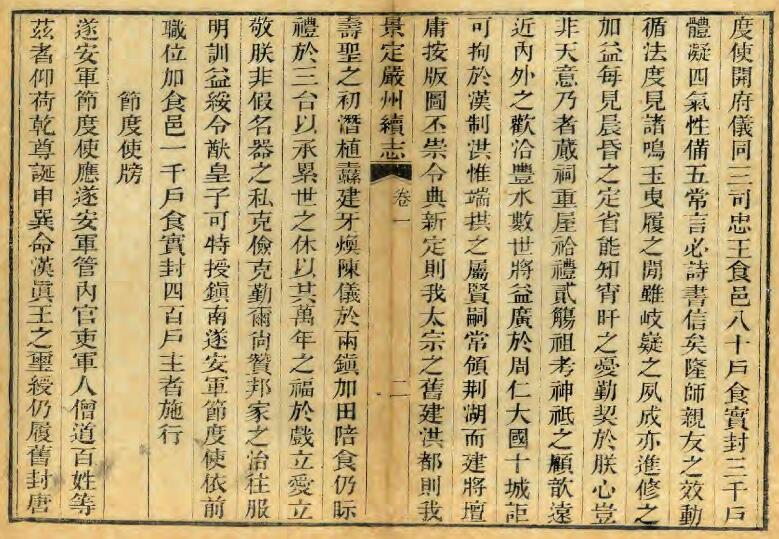 度使開府儀同三司忠王食邑八十戶食實封三千戶
體凝四氣性備五常言必詩書信矣隆師親友之效動
循法度見諸鳴玉曳履之閒雖岐嶷之夙成亦進修之
加益每見晨昏之定省能知宵旰之憂勤契於朕心豈
非天意乃者蕆祠重屋祫禮貳觴祖考神祇之顧歆遠
近內外之歡洽豐水數世將益廣於周仁大國十城詎
可拘於漢制洪惟端拱之屬賢嗣常領荆湖而建將壇
庸按版圖丕崇令典新定則我太宗之舊建洪都則我
景定嚴州續志 卷一 二
壽聖之初潛植纛建牙煥陳儀於兩鎭加田陪食仍眎
禮於三台以承累世之休以其萬年之福於戲立愛立
敬朕非假名器之私克儉克勤爾尙贊邦家之治往服
明訓益綏令猷皇子可特授鎭南遂安軍節度使依前
職位加食邑一千戶食實封四百戶主者施行
節度使牓
遂安軍節度使應遂安軍管內官吏軍人僧道百姓等
茲者仰荷乾尊誕申巽命漢眞王之璽綬仍履舊封唐